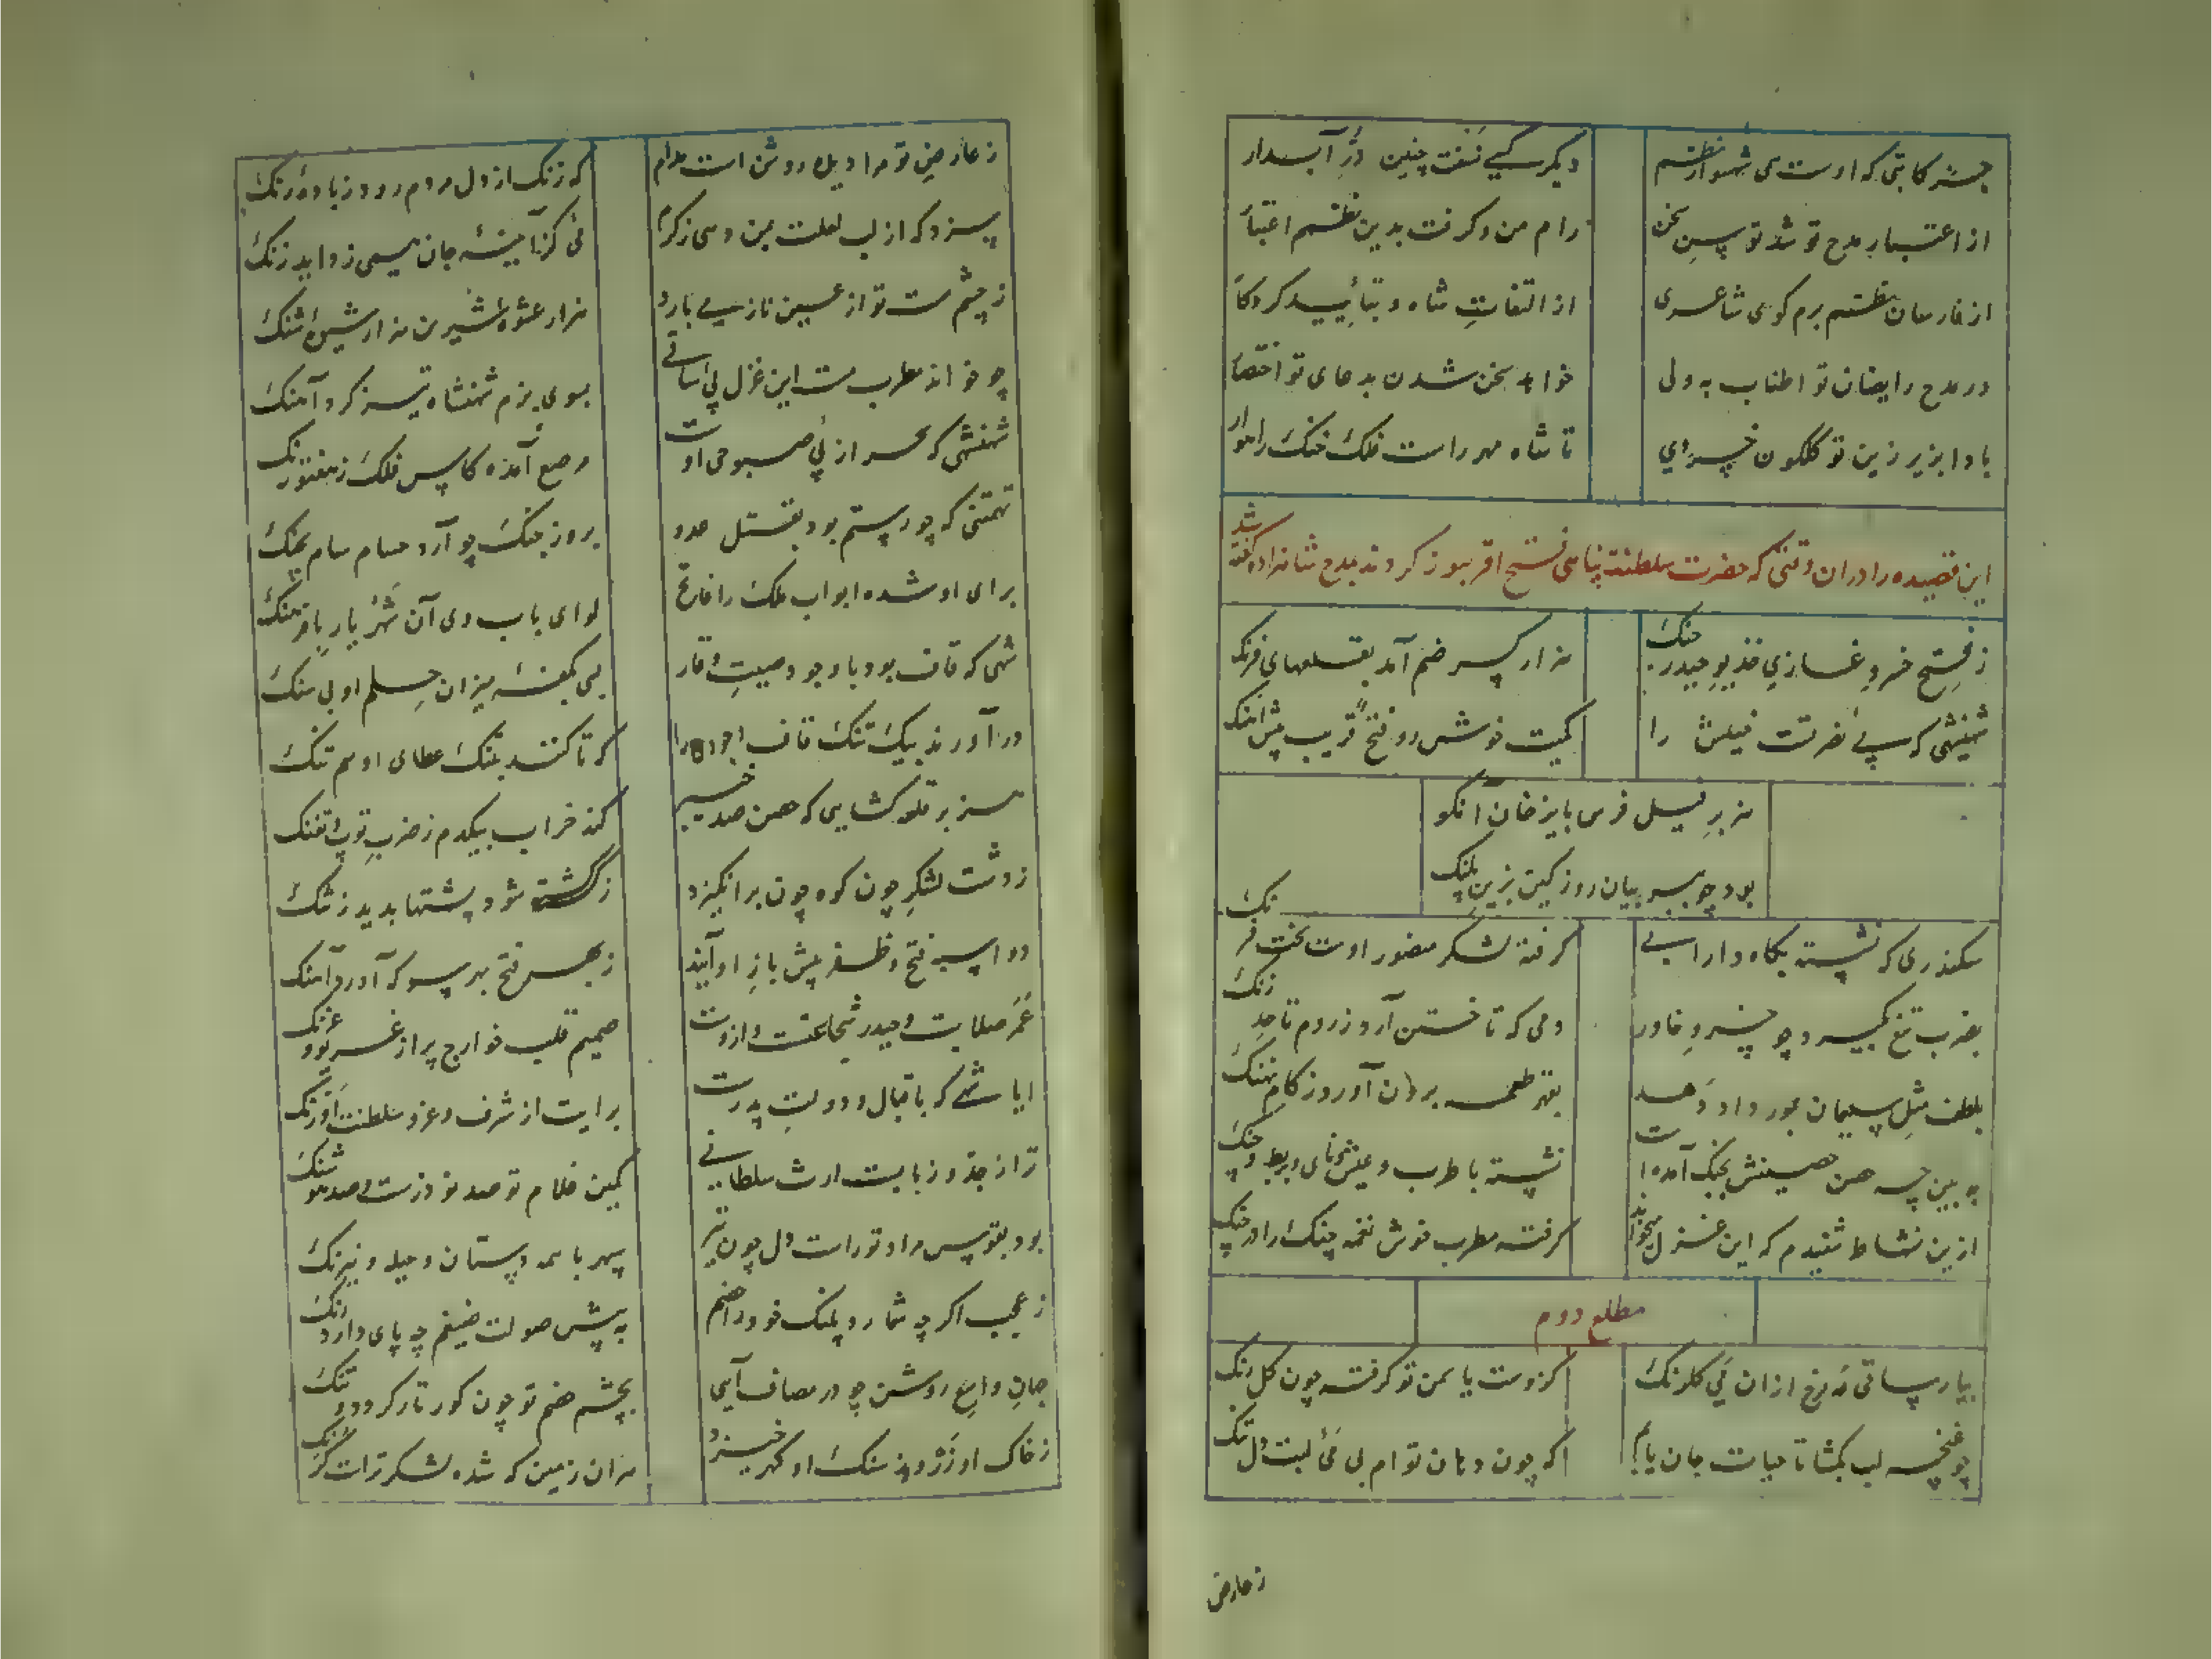 جز کاتبی که اوست شهوار نظم
دیگر کسی نسفت چنین درّ آبدار
از اعتبار مدح تو شد توسن سخن
رام من و گرفت بدین نظم اعتبا
از فارسان نظم برم کوی شاعری
از التفات شاه و بتأیید کردکا
در مدح رایضان تو اطناب به ولی
خواهد سخن شدن بدعای تو اختصا
بادا بزیر زین تو گلگون خسروی
تا شاه مهر راست فلک خنک راهوار
این قصیده را در ان وقتی که حضرت سلطنت پناهی فتح کردند بمدح شاهزاده گفته شد
ز فتح خسرو غازی خدیو حیدر جنک
هزار سر خصم آمد بقلعهای فرنک
شهنشهی که پی نصرت را
کمیت خوش رو فتح قریب پیش آهنک
هزبر بایزخان آنکو
بود چو ببر بیان روز کین بزین پلنک
سکندری که نشسته بگاه دارایی
گرفته لشکر منصور اوست تخت فرنک
بضرب تیغ بگیرد چو خسرو خاور
دمی که تاختن آرد ز روم تا حد زنک
بلطف مثل سلیمان بمور داد دهد
بقهر طعمه برون آورد ز کام نهنک
به بین چه حصن حصینش بجنک آمده است
نشسته با طرب و عیش و نای و بربط و چنک
ازین نشاط شنیدم که این غزل میخواند
گرفته مطرب خوش نغمه چنک را در چنک
مطلع دوم
بیار ساقی مه رخ ازان می گلرنک
کزوست یاسمن تو گرفته چون گل رنک
چو غنچه لب بگشا تا حیات جان یابم
که چون دهان تو ام بی می لبت دل تنک
ز عارض
ز عارض تو مرا دیده روشن است مدام
که زنک از دل مردم رود ز باده رنک
سزد که از لب لعلت من و می زکرم
می کز آینه جان همی زداید زنک
ز چشم مست تو از عین ناز می بارد
هزار عشوه شیرین هزار شیوه شنک
چو خواند مطرب مست این غزل پی ساقی
بسوی بزم شهنشاه تیز کرد آهنک
شهنشهی که سحر از پی صبوحی اوست
مرصع آمده کاس فلک ز هفتورنک
تهمتنی که چو رستم بود بقتل عدو
بروز جنک چو آرد حسام سام بچنک
برای او شده ابواب ملک را فاتح
لوای باب وی آن شهریار با فرهنک
شهی که قاف بود با وجود صیت وقار
بی کفه میزان حلم او بی سنک
در آورند بیک تنک قاف را
که تا کشند بتنک عطای او هم تنک
هزبر قلعه گشایی که حصن صد خیبر
کند خراب بیکدم ز ضرب توپ و تفنک
ز دشت لشکر چون کوه چون برانگیزد
ز کشته شود پشتها پدید ز تنک
دو اسبه فتح و ظفر پیش باز او آیند
ز بهر فتح بهر سو که آورد آهنک
عمر صلابت و حیدر شجاعت و ازوست
صمیم قلب خوارج پر از غریو و غرنک
ایا شهی که باقبال و دولت پدرت
برایت از شرف و عز و سلطنت اورنک
ترا ز جد و ز بابست ارث سلطانی
کمین غلام تو صد نوذرست و صد هوشنک
بود بقوس مراد تو راست دل چون تیر
سپهر با همه دستان و حیله و نیرنک
ز عجب اگر چه شمارد پلنک خود را خصم
به پیش صولت ضیغم چه پای دارد رنک
جهان واسع روشن چو در مصاف آیی
بچشم خصم تو چون گور تار گردد و تنک
ز خاک او زر و ز سنک او گهر خیزد
هران زمین که شده لشکر ترات گذرنک